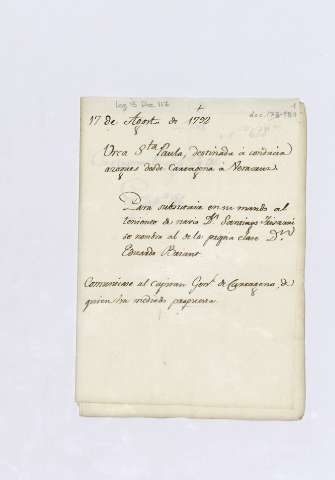 17 de Agost de 1792
Urca Sta Paula, destinada à conducir
azogues desde Cartagena à Veracruz
Para substituir en su mando al
teniente de navio Dn Santiago
se nombra al de la propia clase Dn
Eduardo
Comuniqese al Capitan Genl de Cartagena, de
quien ha venido propuesta